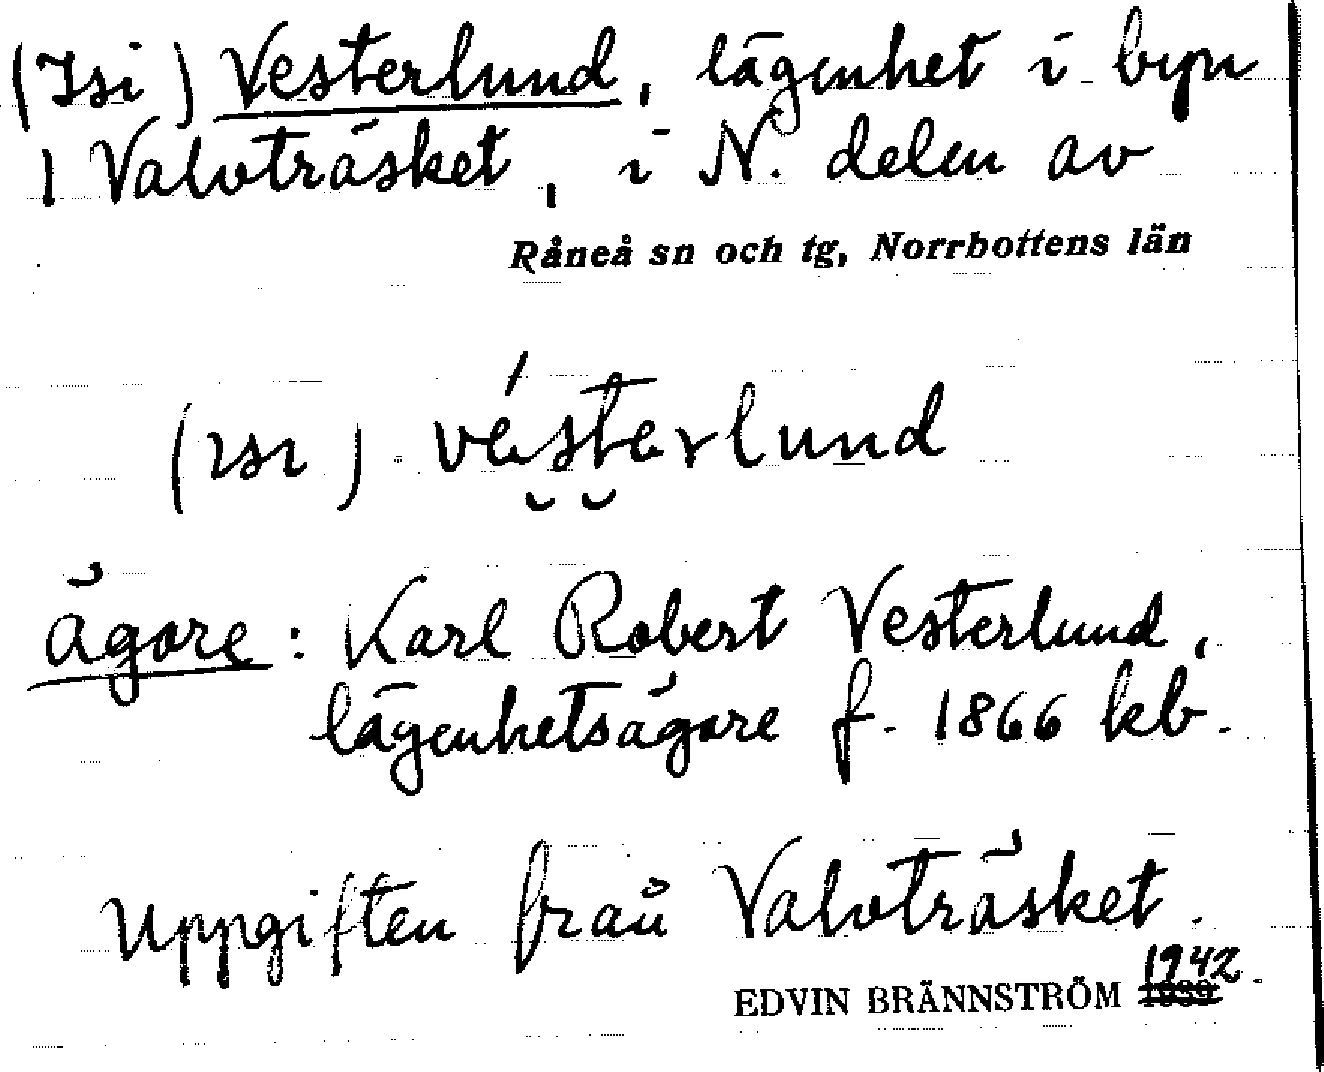 (Isi) Vesterlund, lägenhet i byn
1 Valvträsket, i N. delen av
Råneå sn och tg, Norrbottens län
(ɪsɪ) vésterlund
Ägare: Karl Robert Vesterlund,
lägenhetsägare f. 1866 kb.
Uppgiften från Valvträsket.
1942
EDVIN BRÄNNSTRÖM 1939